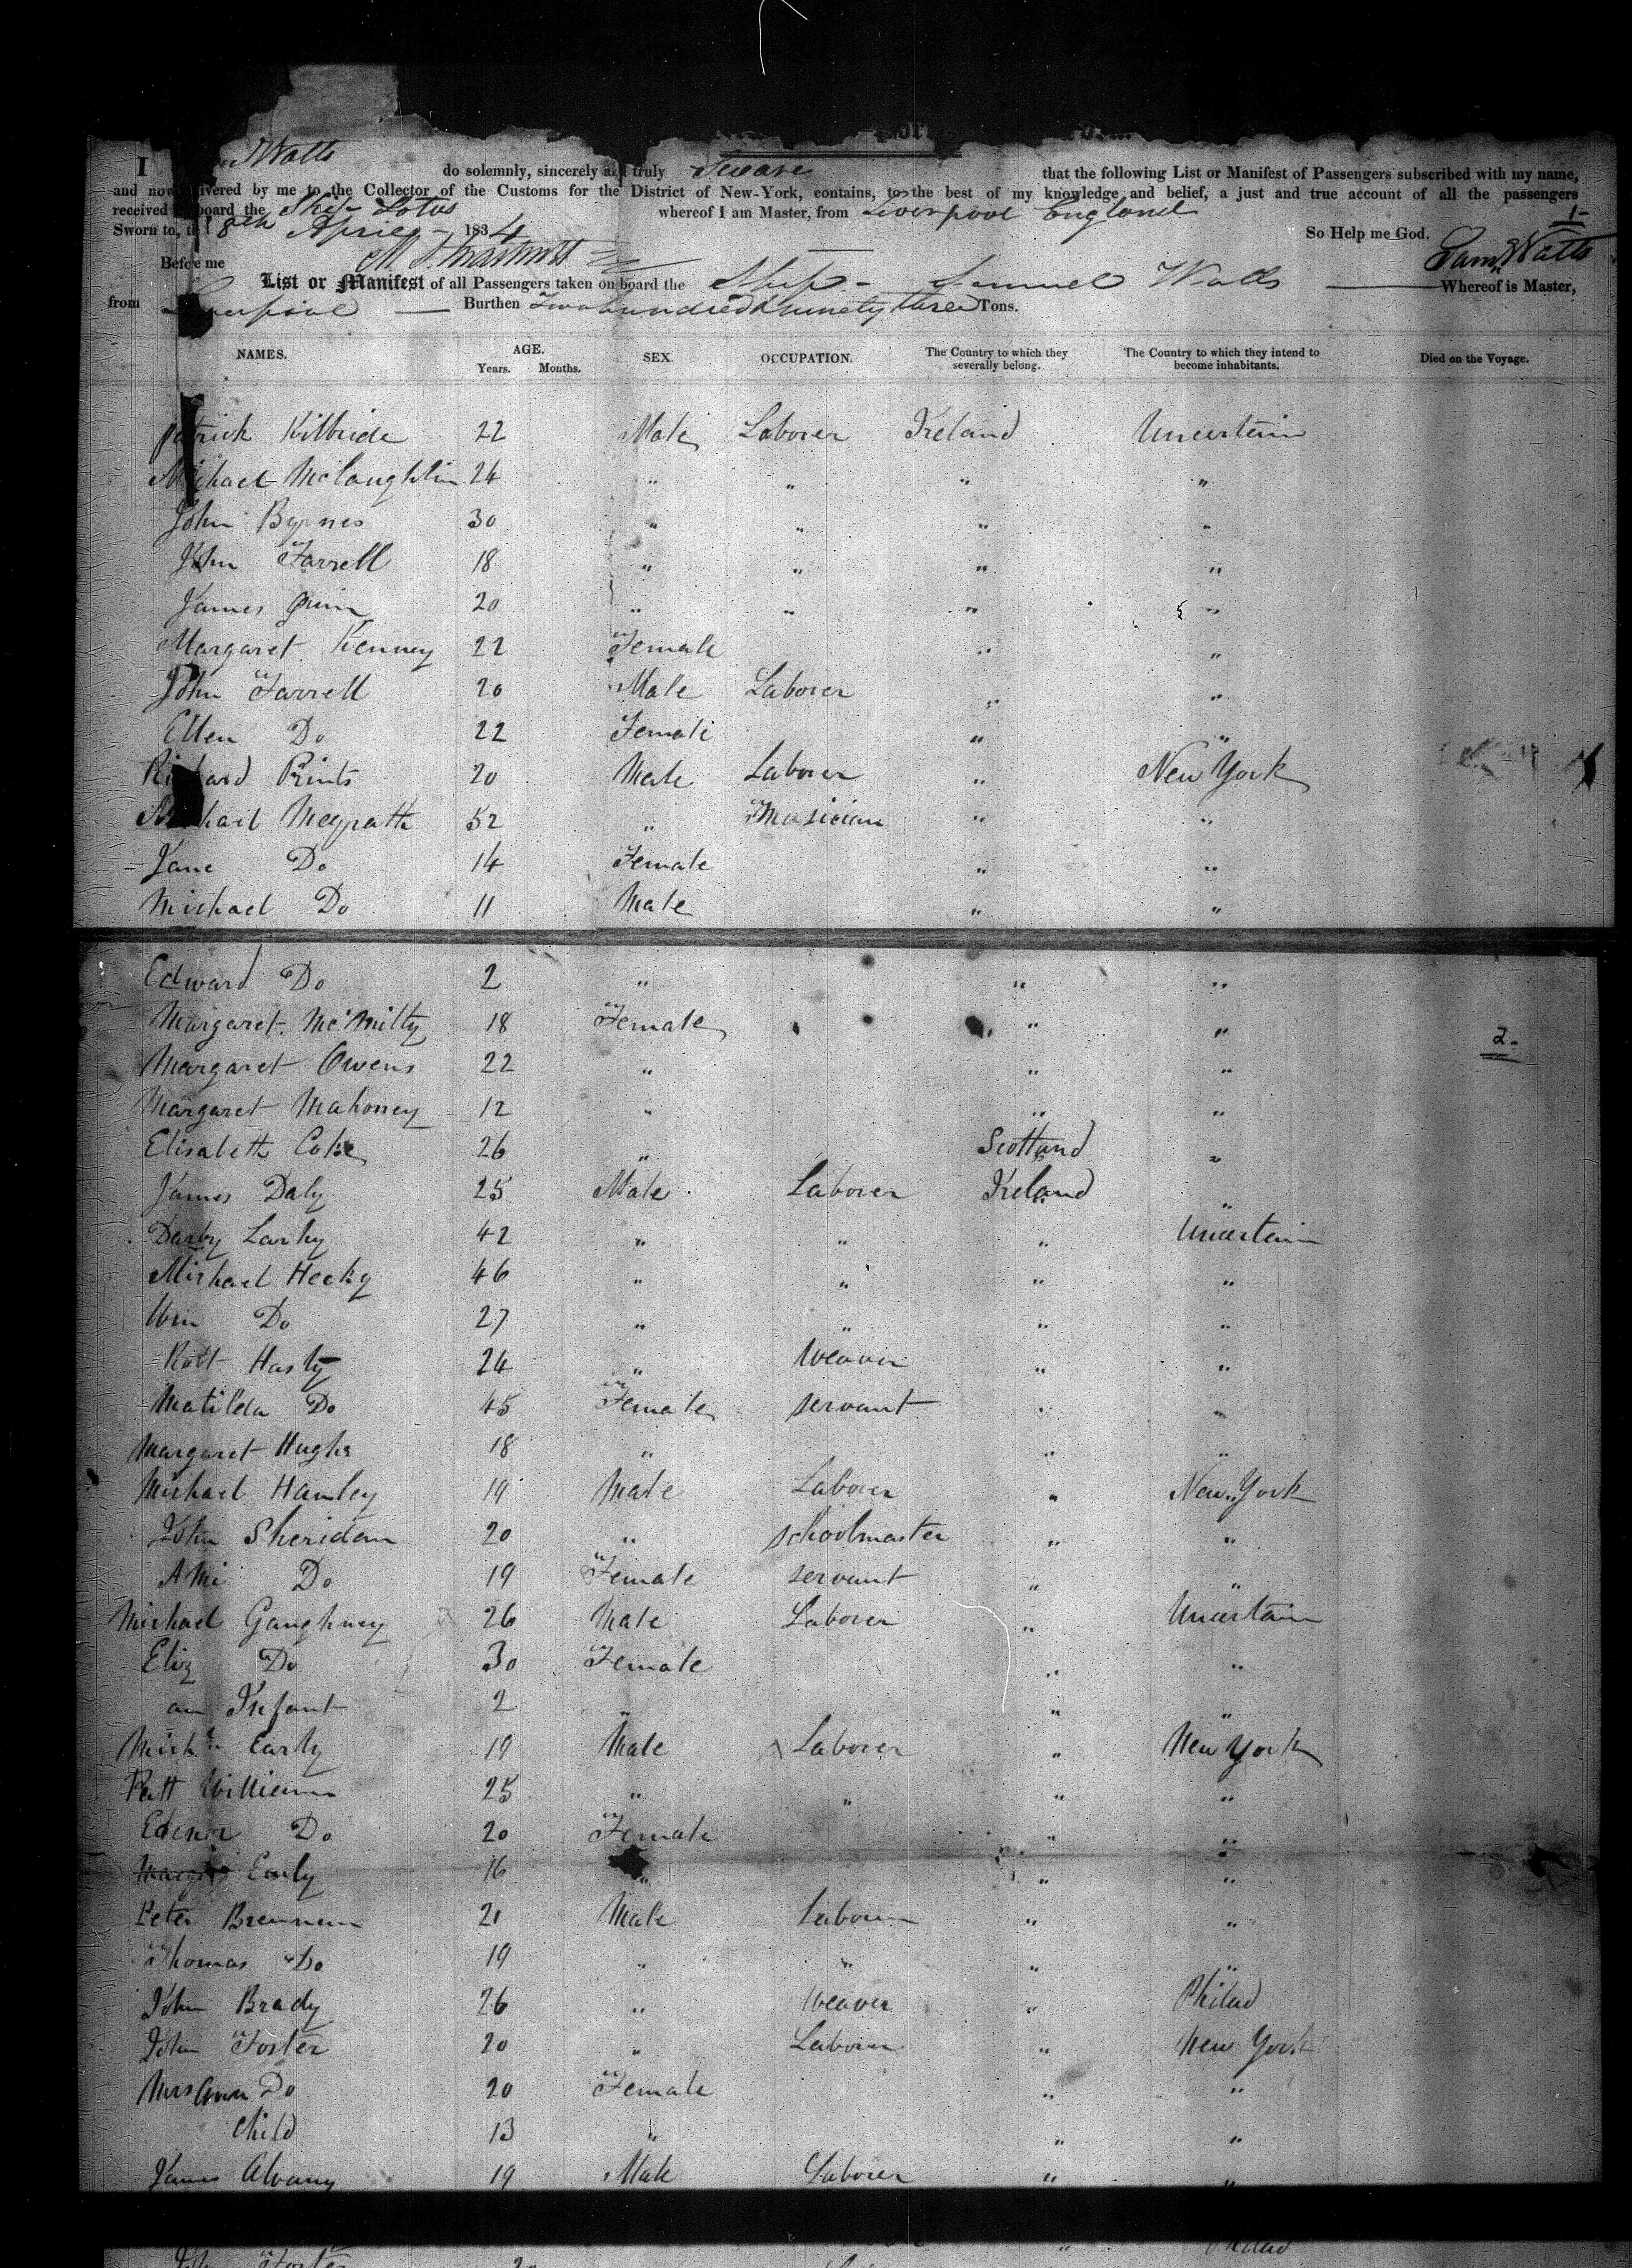 I Watts do solemnly, sincerely and truly Sweare that the following List or Manifest of Passengers subscribed with my name,
and now delivered by me to the Collector of the Customs for the District of New-York, contains, to the best of my knowledge and belief, a just and true account of all the passengers
received board the Ship Lotus whereof I am Master, from Liverpool England
1-
Sworn to, 8th April 1834 So Help me God.
Before me Saml Watts
List or Manifest of all Passengers taken on board the Ship - Samuel Watts Whereof is Master,
from Liverpool Burthen Two hundred & ninety three Tons.
NAMES. AGE. Years. Months. SEX. OCCUPATION. The Country to which they severally belong. The Country to which they intend to become inhabitants. Died on the Voyage.
Patrick Kilbride 22 Male Laborer Ireland Uncertain
Michael McLaughlin 24 " " " "
John Byrnes 30 " " " "
John Farrell 18 " " " "
James Quin 20 " " " "
Margaret Kenney 22 Female " "
John Farrell 20 Male Laborer " "
Ellen Do 22 Female " "
Richard Prints 20 Male Laborer " New York
Michael Megrath 52 " Musician " "
Jane Do 14 Female " "
Michael Do 11 Male " "
Edward Do 2 " " "
Margaret 18 Female " "
2-
Margaret Owens 22 " " "
Margaret Mahoney 12 " " "
Elisabeth 26 " Scotland "
James Daly 25 Male Laborer Ireland "
Darby Larky 42 " " " Uncertain
Michael Hecky 46 " " " "
Wm Do 27 " " " "
Robt Hasty 24 " Weaver " "
Matilda Do 45 Female servant " "
Margaret Hughs 18 " " "
Michael Hanley 19 Male Laborer " New York
John Sheridan 20 " schoolmaster " "
Do 19 Female servant " "
Michael Gaughney 26 Male Laborer " Uncertain
Eliz Do 30 Female " "
an Infant 2 " " "
Early 19 Male Laborer " New York
Patt Williams 25 " " " "
Do 20 Female " "
Early 16 " " "
Peter Brennan 21 Male Laborer " "
Thomas Do 19 " " " "
John Brady 26 " Weaver " Philad
John Foster 20 " Laborer " New York
Mrs Ann Do 20 Female " "
Child 13 " " "
James Alvany 19 Male Laborer " "